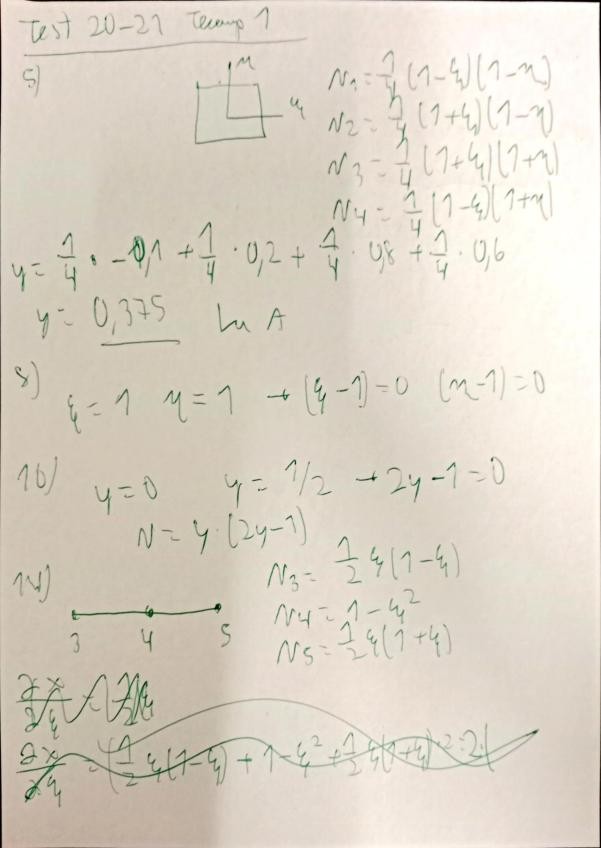 Test 20-21 Tecump 1
5)
η
ξ
N1 = 1/4 (1-ξ)(1-η)
N2 = 1/4 (1+ξ)(1-η)
N3 = 1/4 (1+ξ)(1+η)
N4 = 1/4 (1-ξ)(1+η)
y = 1/4 · -0,1 + 1/4 · 0,2 + 1/4 · 0,8 + 1/4 · 0,6
y = 0,375 A
8)
ξ = 1 η = 1 → (ξ-1)=0 (η-1)=0
10)
y=0 y = 1/2 → 2y-1=0
N = y·(2y-1)
14)
3 4 5
N3 = 1/2 ξ(1-ξ)
N4 = 1-ξ²
N5 = 1/2 ξ(1+ξ)
∂x/∂ξ =
∂x/∂ξ = (1/2 ξ(1-ξ) + 1-ξ² + 1/2 ξ(1+ξ)